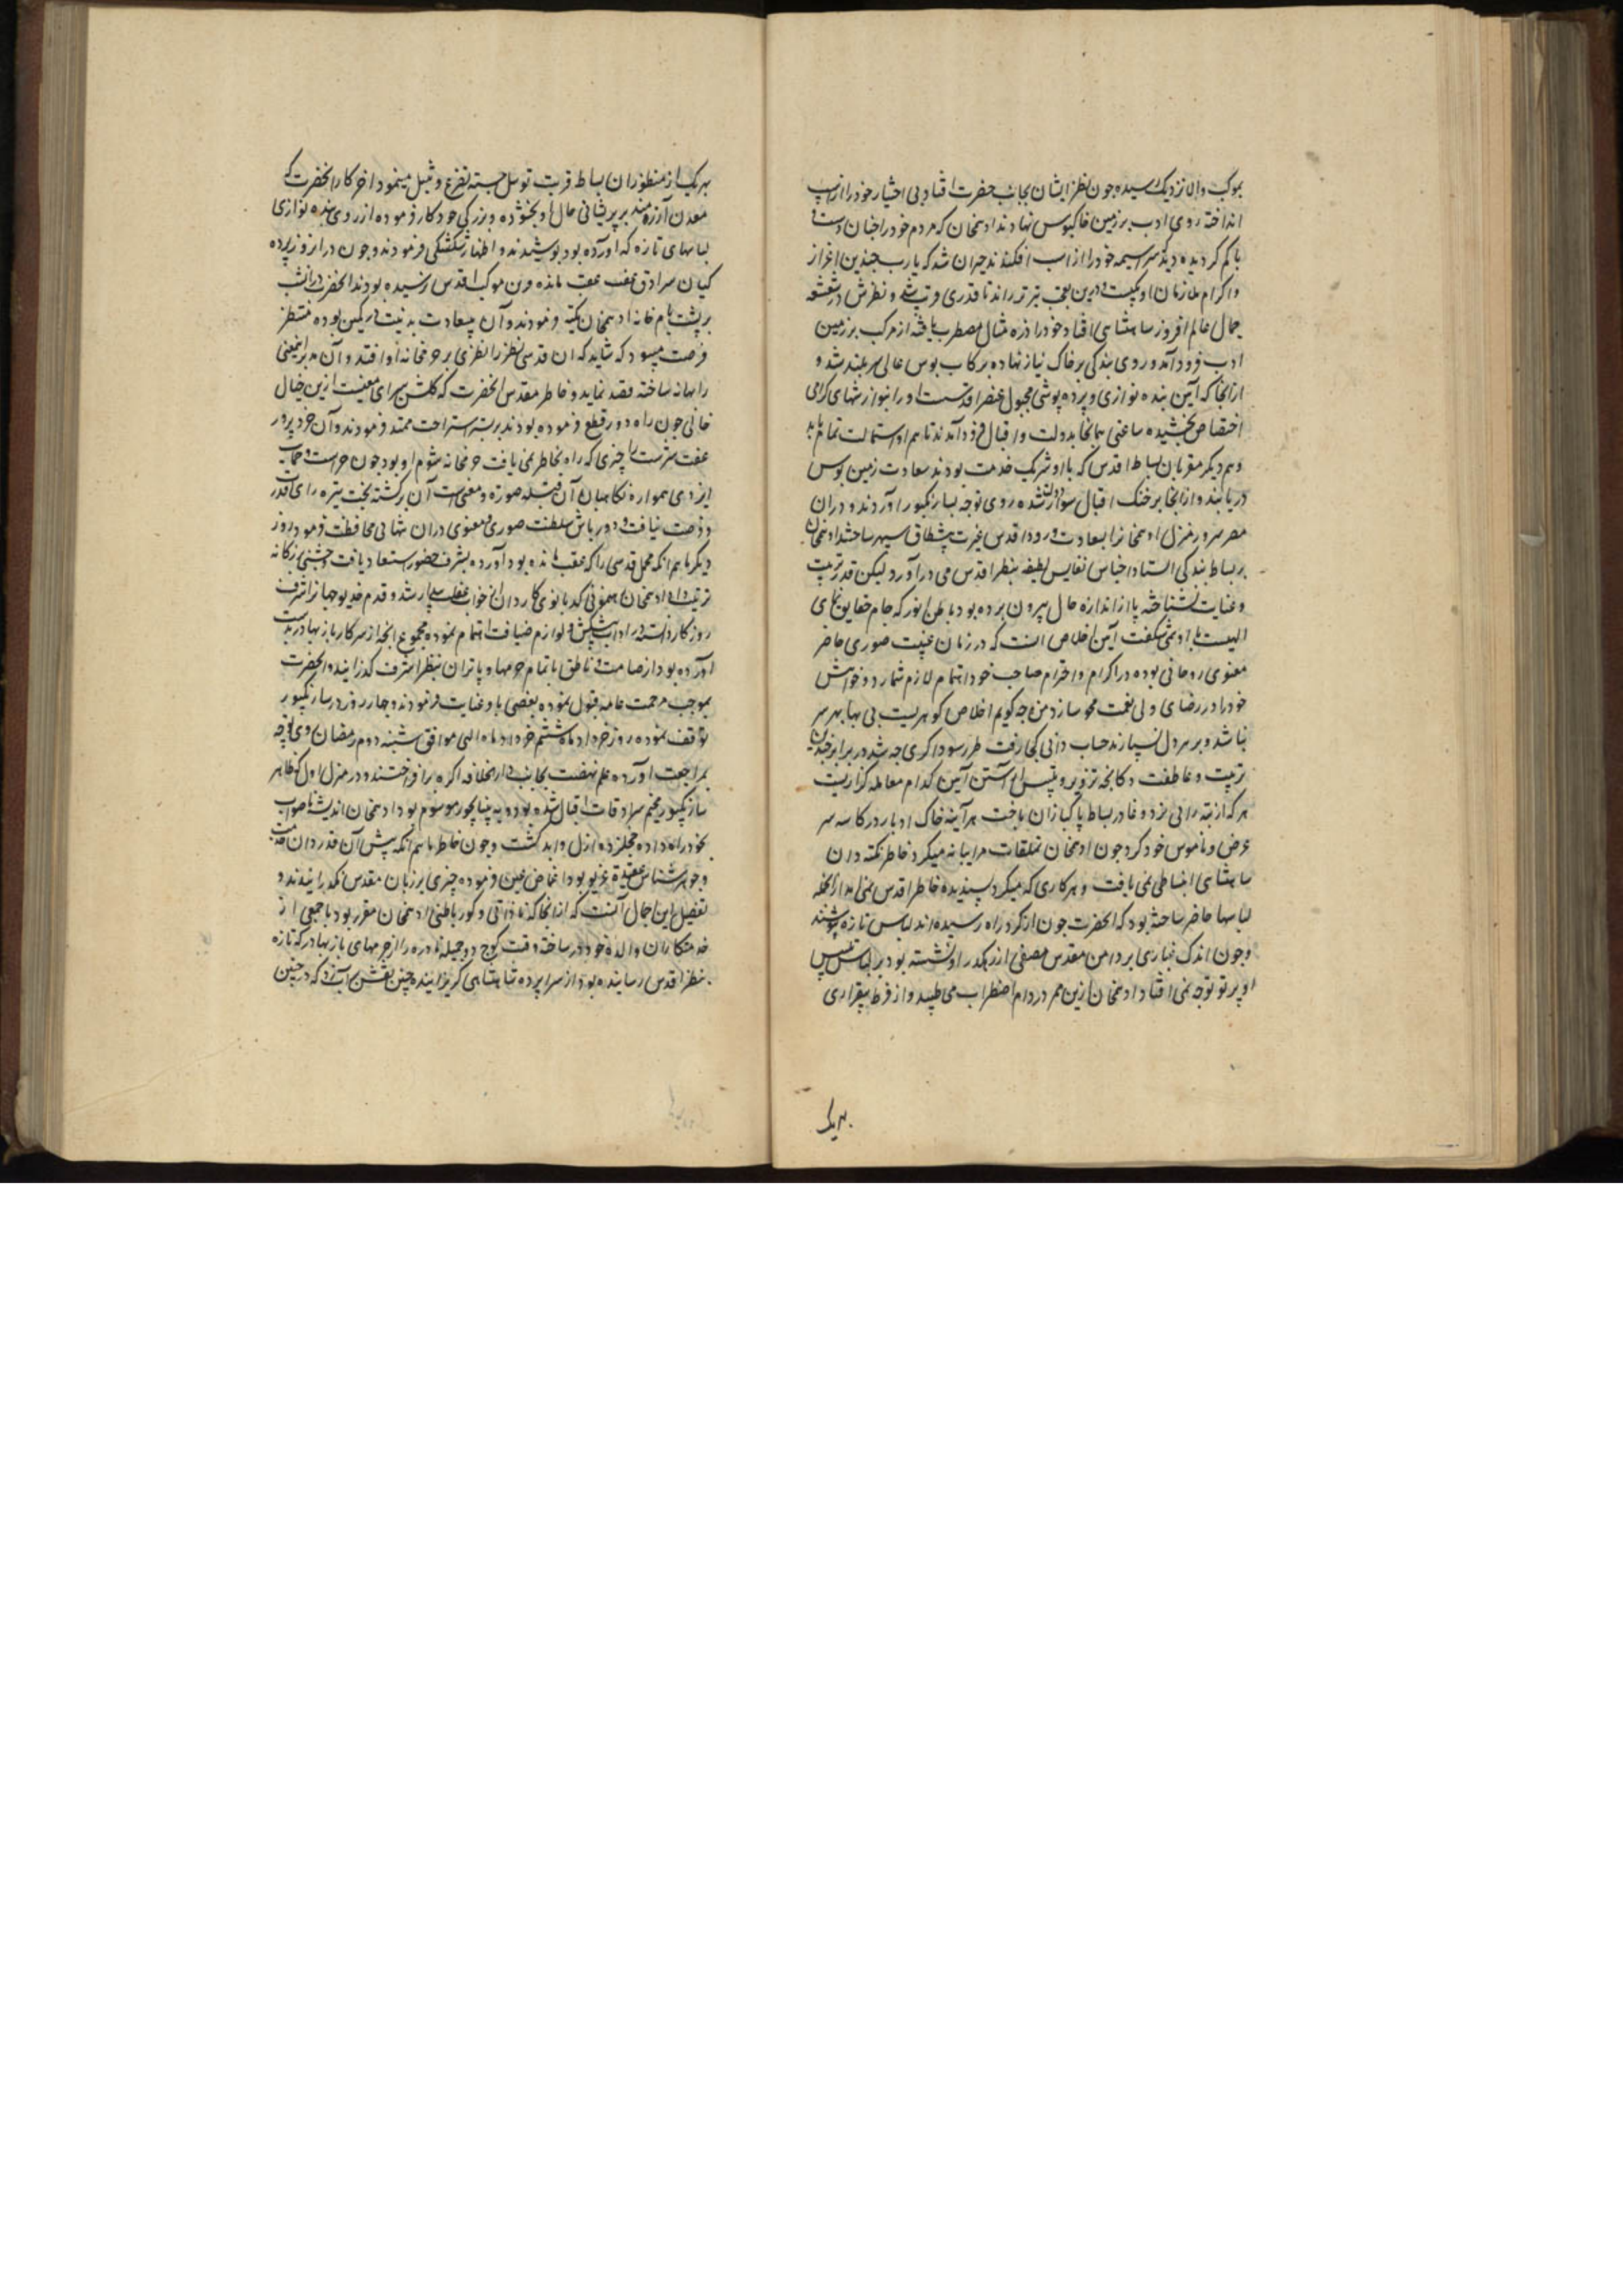 بموکب والا نزدیک رسیده چون نظر ایشان بجانب حضرت افتاد بی اختیار خود را از اسپ
انداخته روی ادب بر زمین خاکبوس نهادند ادهمخان که مردم خود را چنان دست و
پا گم کرده دید سراسیمه خود را از اسب افکند حیران شد که یارب چندین اعزاز
و اکرام ملازمان او کیست درین تعجب تیزتر راند تا قدری قریب شد و نظرش در شعشعه
جمال عالم افروز شاهنشاهی افتاد خود را ذره مثال مضطرب یافته از مرکب بر زمین
ادب فرود آمد و روی بندگی بر خاک نیاز نهاده برکاب بوس عالی سربلند شد و
ازانجا که آیین بنده نوازی و پرده پوشی مجبول عنصر اقدس است او را بنوازشهای گرامی
اختصاص بخشیده ساعتی همانجا بدولت و اقبال فرود آمدند تا هم او استمالت تمام یابد
و هم دیگر مقربان بساط اقدس که با او شریک خدمت بودند سعادت زمین بوس
دریابند و از انجا بر خنگ اقبال سوار شده روی توجه بسارنگپور آوردند و دران
مصر سرور منزل ادهمخان را بسعادت ورود اقدس غیرت پیشطاق سپهر ساختند ادهمخان
بر بساط بندگی ایستاد اجناس نفایس لطیفه بنظر اقدس می درآورد لیکن قدر تربیت
و عنایت نشناخته پا از اندازه حال بیرون برده بود باطن انور که جام حقایق نمای
الهیست با او نمی شکفت آیین اخلاص آنست که در زمان غیبت صوری حاضر
معنوی روحانی بوده در اکرام و احترام صاحب خود اهتمام لازم شمارد و خواهش
خود را در رضای ولی نعمت محو سازد من چه گویم اخلاص گوهریست بی بها بهر سر
نباشد و بر هر دل نسپارند حساب دانی کجا رفت طرز سوداگری چه شد در برابر چندین
تربیت و عاطفت دکانچه تزویر و تلبیس آراستن آیین کدام معامله گزاریست
هر که از تبه رایی نرد دغا در بساط پاکبازان باخت هر آینه خاک ادبار در کاسه سر
عرض و ناموس خود کرد چون ادهمخان تملقات مرایبانه میکرد خاطر نکته دان
شاهنشاهی انبساطی نمی یافت و هر کاری که میکرد پسندیده خاطر اقدس نمی آمد ازانجمله
لباسها حاضر ساخته بود که آنحضرت چون از گرد راه رسیده اند لباس تازه پوشند
و چون اندک غباری بر دامن مقدس مصفی از رهگذر او نشسته بود بر لباس تلبیس
او پرتو توجه نمی افتاد ادهمخان ازین ممر در دام اضطراب می طپید و از فرط بیقراری
بهریک
بهریک از منظوران بساط قربت توسل جسته تضرع و تبتل مینمود آخر کار آنحضرت که
معدن آزرم اند بر پریشانی حال او بخشوده و بزرگی خود کار فرموده از روی بنده نوازی
لباسهای تازه که آورده بود پوشیدند و اظهار شگفتگی فرمودند و چون دران روز پرده
گیان سرادق عفت عقب مانده و من موکب اقدس نرسیده بودند آنحضرت دران شب
بر پشت بام خانه ادهمخان تکیه فرمودند و آن بیسعادت بد نیت در کمین بوده منتظر
فرصت میبود که شاید که آن قدسی نظر را نظری بر حرمخانه او افتد و آن مدبر اینمعنی
را بهانه ساخته قصد نماید و خاطر مقدس آنحضرت که گلشن سرای معنیست ازین خیال
خالی چون راه دور قطع فرموده بودند بر بستر استراحت ممتد فرمودند و آن خرد پرور
عفت سرشت را چیزی که راه بخاطر نمی یافت حرمخانه شوم او بود چون حراست و حمایت
ایزدی همواره نگاهبان آن قبله صورت و معنی است آن برگشته بخت تیره رای قدرت
و فرصت نیافت و دورباش سلطنت صوری و معنوی دران تنهایی محافظت فرمود روز
دیگر ماهم انگه محمل قدسی را که عقب مانده بود آورده بشرف حضور استسعاد یافت و جشنی بزرگانه
ترتیب داد و ادهمخان برهنمونی کدبانوی کاردان از خواب غفلت بیدار شد و قدم خدیو جهان را شرف
روزگار دانسته در آداب پیشکش و لوازم ضیافت اهتمام نموده مجموع آنچه از سرکار بازبهادر بدست
آورده بود از صامت و ناطق با تمام حرمها و پاتران بنظر اشرف گذرانید و آنحضرت
بموجب مرحمت عامه قبول نموده بعضی باو عنایت فرمودند و چهار روز در سارنگپور
توقف نموده روز خرداد ماه ششم خرداد ماه الهی موافق شنبه دوم رمضان روی توجه
بمراجعت آورده علم نهضت بجانب دارالخلافه اگره برافراختند و در منزل اول که ظاهر
سارنگپور مخیم سرادقات اقبال شده بود و به پنیاپچور موسوم بود ادهمخان اندیشه ناصواب
بخود راه داده خجلت زده ازل و ابد گشت و چون خاطر ماهم انگه پیش آن قدردان خدمت
و جوهر شناس عقیدت عزیز بود اغماض عین فرموده چیزی بر زبان مقدس نگذرانیدند و
تفصیل این اجمال آنست که ازانجا که نادانی و کور باطنی ادهمخان مقرر بود با جمعی از
خدمتکاران والده خود در ساخته وقت کوچ دو جمیله نادره را از حرمهای بازبهادر که تازه
بنظر اقدس رسانیده بود از سراپرده شاهنشاهی گریزانیده چنین نقش بر آب زد که در چنین